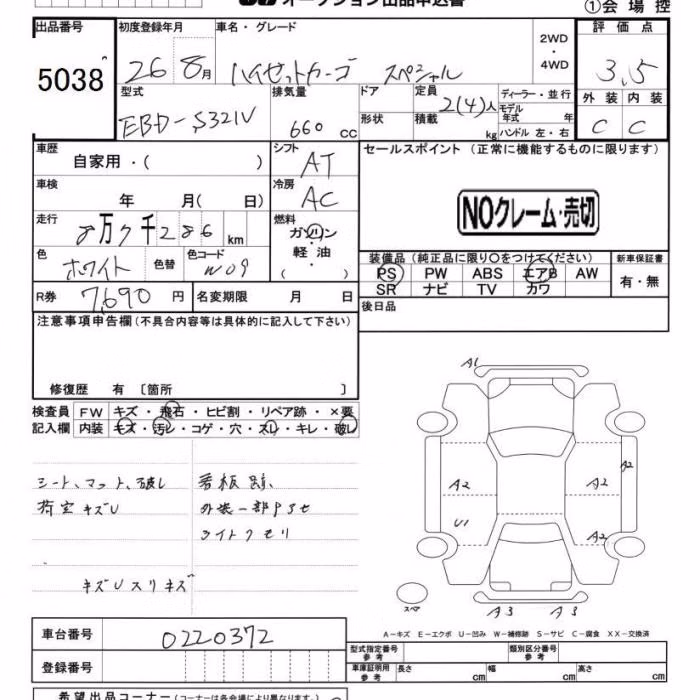 オークション出品申込書
①会場控
出品番号 初度登録年月 車名・グレード 2WD・4WD 評価点
5038 26 8月 ハイゼットカーゴ スペシャル 3.5
型式 排気量 ドア 定員 2(4)人 ディーラー・並行 外装 内装
EBD-S321V 660cc 形状 積載 kg モデル年式 年 ハンドル 左・右 C C
車歴 自家用・( ) シフト AT セールスポイント (正常に機能するものに限ります)
車検 年 月( 日) 冷房 AC
NOクレーム・売切
走行 8万7千286km 燃料 ガソリン
軽油
( )
色 ホワイト 色替 色コード W09
装備品 (純正品に限り〇をつけてください) 新車保証書
PS PW ABS エアB AW 有・無
SR ナビ TV カワ
R券 7,690円 名変期限 月 日 後日品
注意事項申告欄(不具合内容等は具体的に記入して下さい)
修復歴 有 〔箇所 〕
検査員 FW キズ・飛石・ヒビ割・リペア跡・×要
記入欄 内装 キズ・汚レ・コゲ・穴・スレ・キレ・破レ
シート、マット、破レ 看板跡
荷室キズU 外装一部Pヨセ
ライトクモリ
キズUスリキズ
A1
A2 A2 A2
U1 A2
スペア A3 A3
A-キズ E-エクボ U-凹み W-補修跡 S-サビ C-腐食 XX-交換済
車台番号 0220372
型式指定番号 参考 類別区分番号 参考
登録番号 車庫証明用 参考 長さ cm 幅 cm 高さ cm
希望出品コーナー(コーナーは各会場により異なります。)